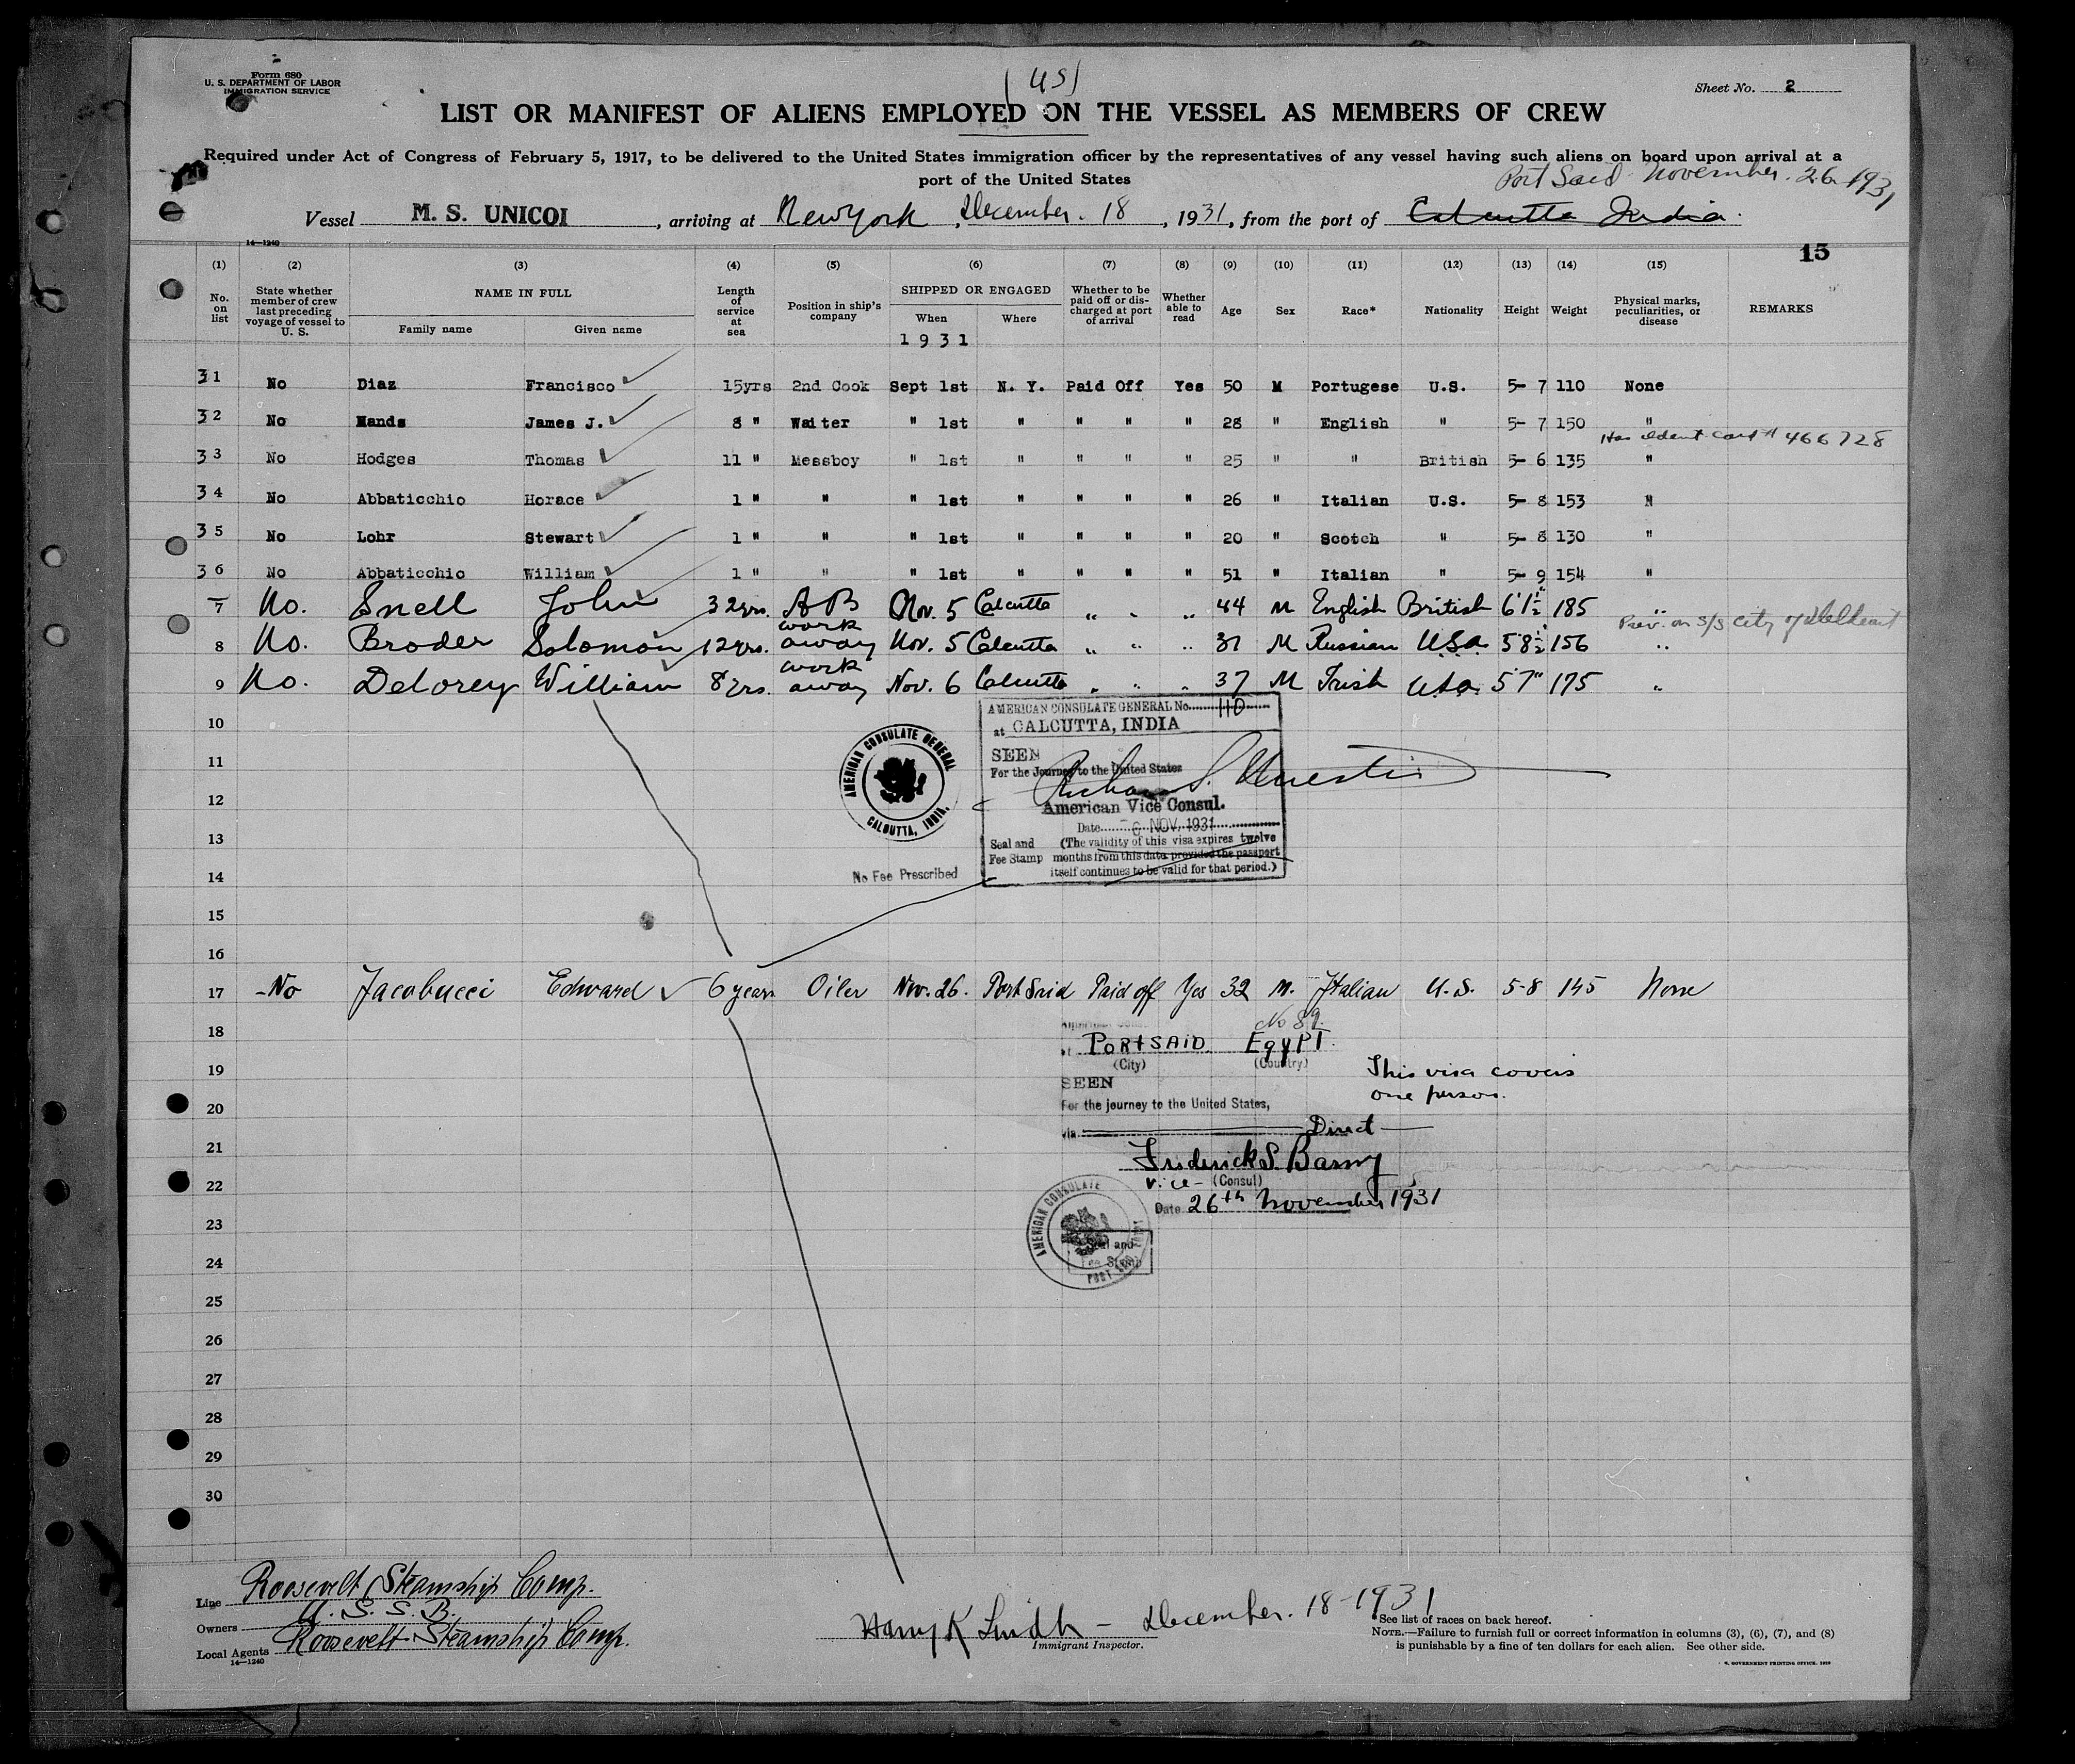 Form 680
U. S. DEPARTMENT OF LABOR
IMMIGRATION SERVICE
(US)
Sheet No. 2
LIST OR MANIFEST OF ALIENS EMPLOYED ON THE VESSEL AS MEMBERS OF CREW
Required under Act of Congress of February 5, 1917, to be delivered to the United States immigration officer by the representatives of any vessel having such aliens on board upon arrival at a
port of the United States
Port Said November. 26 1931
Vessel M. S. UNICOI, arriving at New York, December. 18, 1931, from the port of Calcutta India.
14—1240
15
(1) (2) (3) (4) (5) (6) (7) (8) (9) (10) (11) (12) (13) (14) (15)
No. on list State whether member of crew last preceding voyage of vessel to U. S. NAME IN FULL Family name Given name Length of service at sea Position in ship's company SHIPPED OR ENGAGED When Where Whether to be paid off or discharged at port of arrival Whether able to read Age Sex Race* Nationality Height Weight Physical marks, peculiarities, or disease REMARKS
1931
31 No Diaz Francisco 15yrs 2nd Cook Sept 1st N. Y. Paid Off Yes 50 M Portugese U.S. 5- 7 110 None
32 No Hands James J. 8 " Waiter " 1st " " " " 28 " English " 5- 7 150 "
Has ident card # 466728
33 No Hodges Thomas 11 " Messboy " 1st " " " " 25 " " British 5- 6 135 "
34 No Abbaticchio Horace 1 " " " 1st " " " " 26 " Italian U.S. 5- 8 153 "
35 No Lohr Stewart 1 " " " 1st " " " " 20 " Scotch " 5- 8 130 "
36 No Abbaticchio William 1 " " " 1st " " " " 51 " Italian " 5- 9 154 "
7 No. Snell John 32yrs. AB Nov. 5 Calcutta " " " 44 M English British 6'1½" 185 "
Prev. on S/S City of
8 No. Broder Solomon 12yrs. work away Nov. 5 Calcutta " " " 31 M Russian USA 5'8½ 156 "
9 No. Delorey William 8yrs. work away Nov. 6 Calcutta " " " 37 M Irish USA. 5'7" 175 "
10
AMERICAN CONSULATE GENERAL No. 110
at CALCUTTA, INDIA
SEEN
For the Journey to the United States
American Vice Consul.
Date 6 NOV. 1931
Seal and Fee Stamp (The validity of this visa expires twelve
months from this date provided the passport
itself continues to be valid for that period.)
AMERICAN CONSULATE GENERAL
CALCUTTA, INDIA.
No Fee Prescribed
11
12
13
14
15
16
17 No Jacobucci Edward 6 years Oiler Nov. 26. Port Said Paid off Yes 32 M. Italian U. S. 5-8 145 None
18
No 89.
at PORT SAID. EGYPT.
(City) (Country)
SEEN
For the journey to the United States,
via Direct
This visa covers
one person.
Frederick S. Barny
Vice- (Consul)
Date 26th November 1931
AMERICAN CONSULATE
PORT SAID
Seal and
Fee Stamp
19
20
21
22
23
24
25
26
27
28
29
30
Line Roosevelt Steamship Comp.
Owners U. S. S. B.
Local Agents Roosevelt Steamship Comp.
14—1240
Harry K Lindh - December. 18-1931
Immigrant Inspector.
*See list of races on back hereof.
NOTE.—Failure to furnish full or correct information in columns (3), (6), (7), and (8)
is punishable by a fine of ten dollars for each alien. See other side.
U. S. GOVERNMENT PRINTING OFFICE. 1929